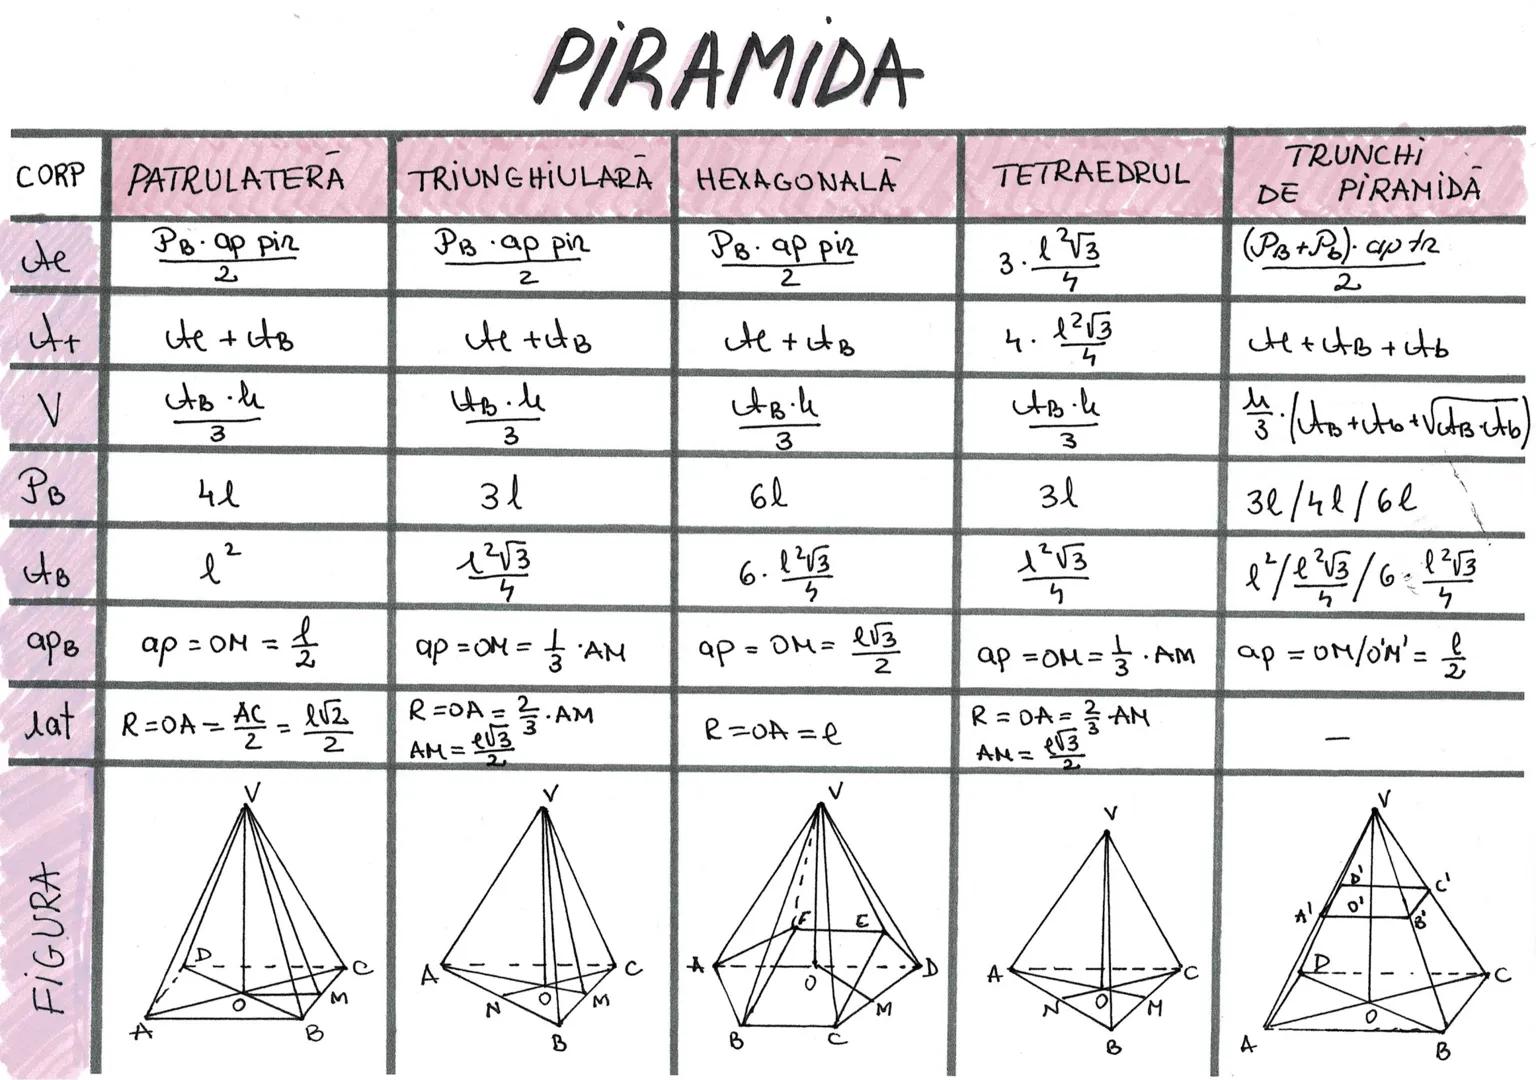 PIRAMIDA
CORP PATRULATERĂ TRIUNGHIULARĂ HEXAGONALĂ TETRAEDRUL TRUNCHI DE PIRAMIDĂ
Aℓ P_B · ap pir / 2 P_B · ap pir / 2 P_B · ap pir / 2 3 · ℓ²√3 / 4 (P_B + P_b) · ap tr / 2
At Aℓ + A_B Aℓ + A_B Aℓ + A_B 4 · ℓ²√3 / 4 Aℓ + A_B + A_b
V A_B · h / 3 A_B · h / 3 A_B · h / 3 A_B · h / 3 h/3 · (A_B + A_b + √(A_B · A_b))
P_B 4ℓ 3ℓ 6ℓ 3ℓ 3ℓ/4ℓ/6ℓ
A_B ℓ² ℓ²√3 / 4 6 · ℓ²√3 / 4 ℓ²√3 / 4 ℓ² / ℓ²√3/4 / 6 · ℓ²√3/4
ap_B ap = OM = ℓ/2 ap = OM = 1/3 · AM ap = OM = ℓ√3/2 ap = OM = 1/3 · AM ap = OM/O'M' = ℓ/2
lat R = OA = AC/2 = ℓ√2/2 R = OA = 2/3 · AM R = OA = ℓ R = OA = 2/3 · AM –
AM = ℓ√3/2 AM = ℓ√3/2
FIGURA
V D C O M A B
V A C N O M B
V F E A O D M B C
V A C N O M B
V D' C' A' O' B' D C O A B